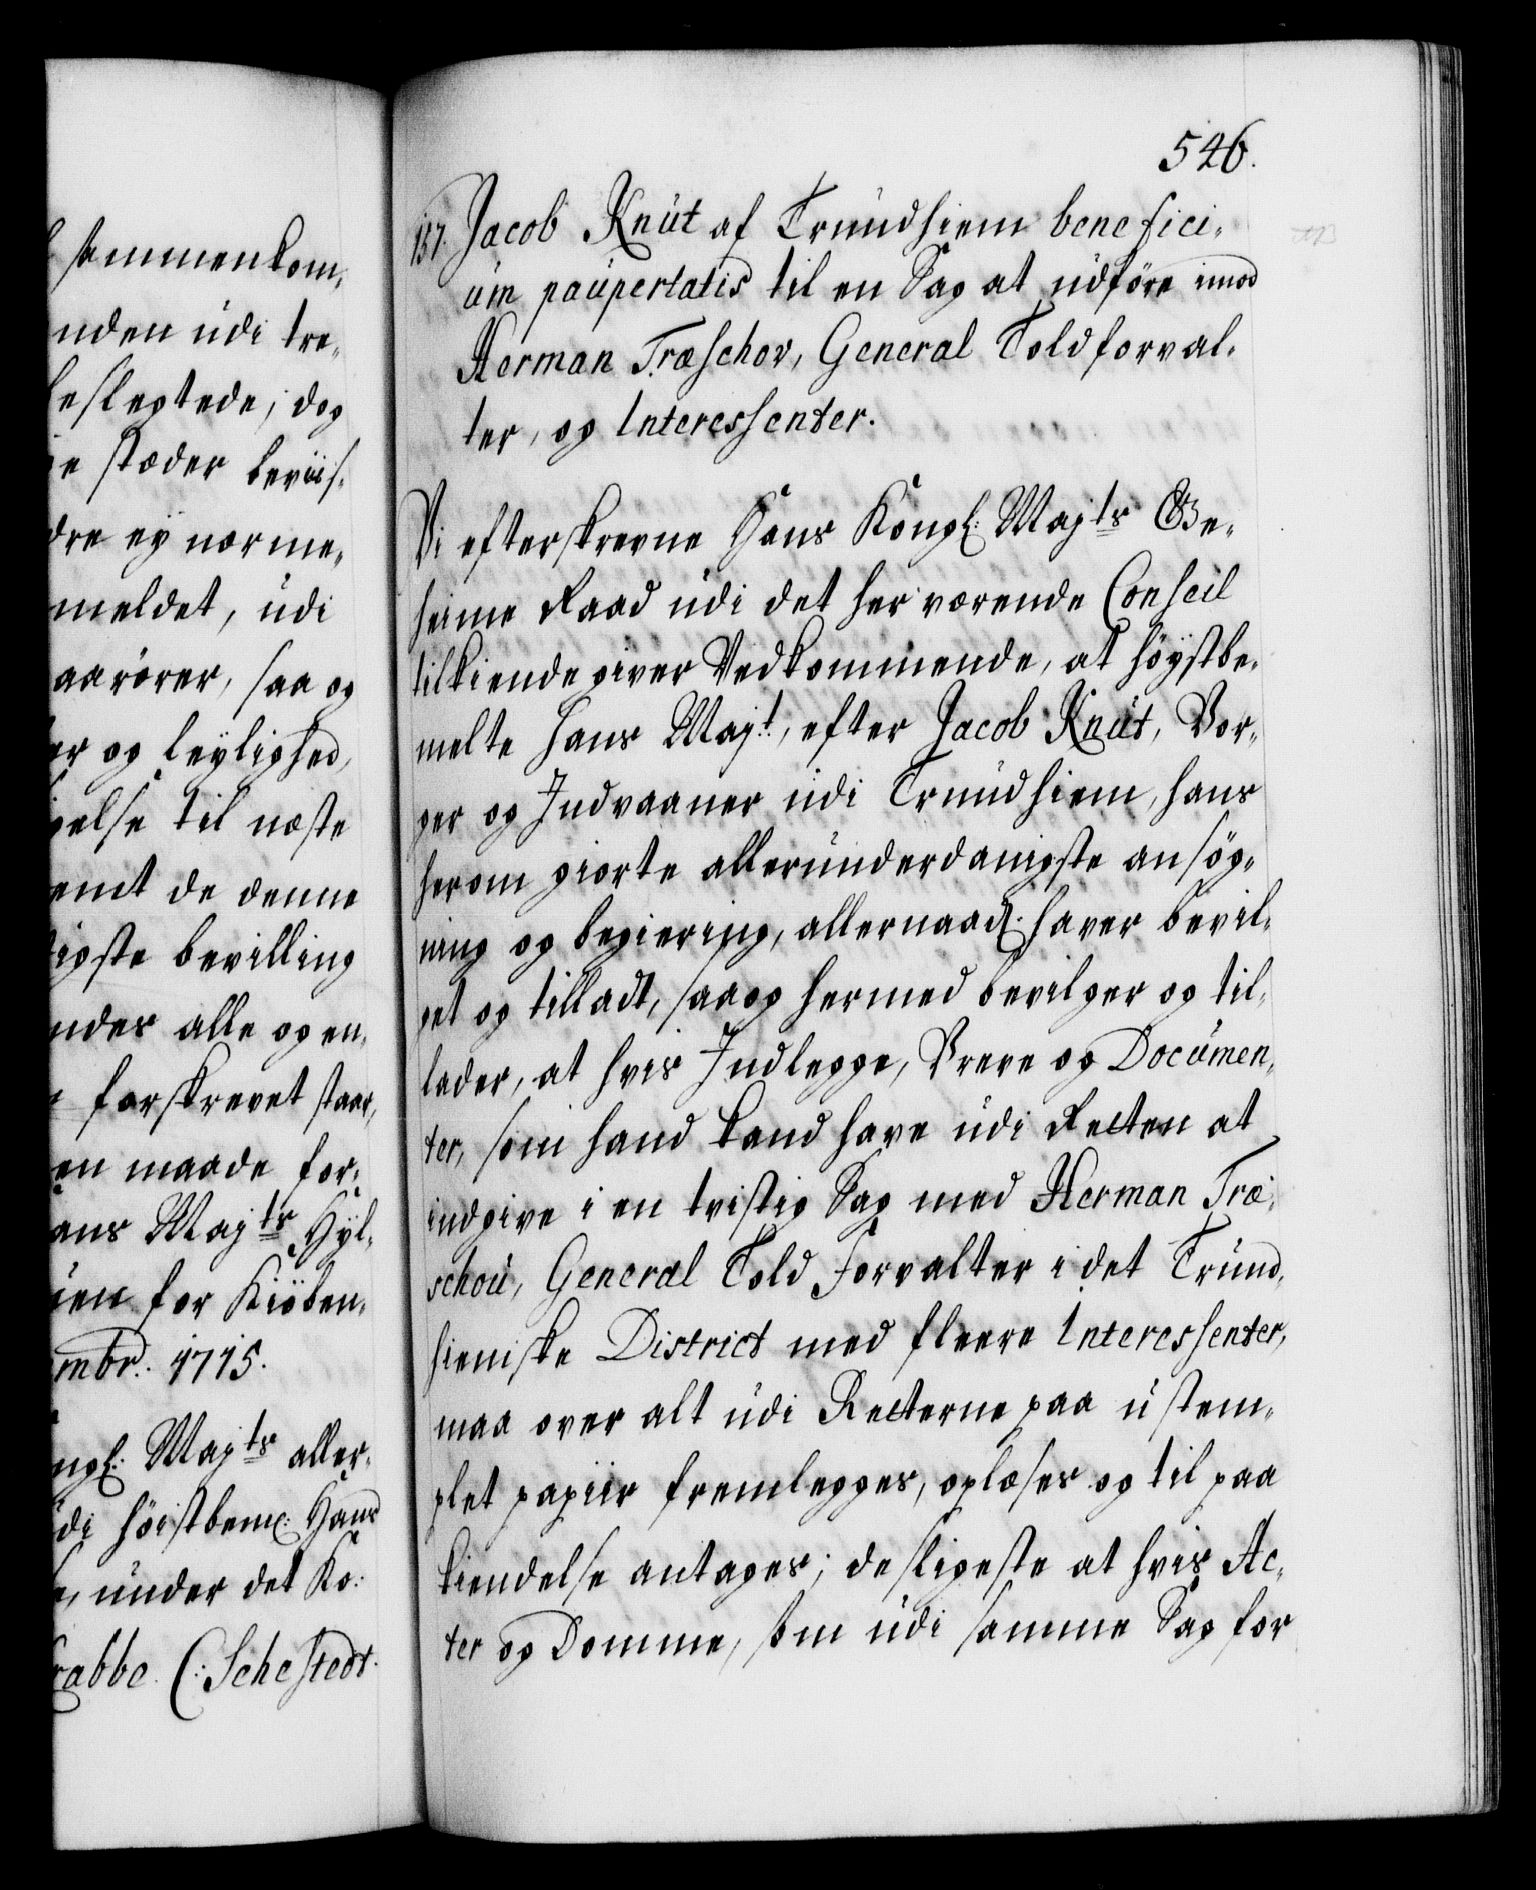 sammenkom¬
nden udi tre¬
beslegtede; dog
ge stæder beviis¬
dre ey nærme¬
meldet, udi
aarører, saa og
er og leylighed,
gelse til næste
emt de denne
digste bevilling
ndes alle og en¬
forskrevet staar,
en maade for¬
ans Majts Hyl¬
ien for Kiøben¬
mbr: 1715.
ngl: Majts aller¬
di høistbem: Hans
e, under det Ko:
rabbe. C: Schestedt.
546.
137. Jacob Knut af Trundhiem benefici¬
um paupertatis til en Sag at udføre imod
Herman Træschov, General Toldforval¬
ter, og Interessenter.
Vi efterskrevne Hans Kongl: Majts Ge¬
heime Raad udi det her værende Conseil
tilkiendegiver Vedkommende, at høystbe¬
melte Hans Majt, efter Jacob Knut, Bor¬
ger og Indvaaner udi Trundhiem, hans
herom giorte allerunderdanigste ansøg¬
ning og begiering, allernaad: haver bevil¬
get og tilladt, saa og hermed bevilger og til¬
lader, at hvis Indlegge, Breve og Documen¬
ter, som hand kand have udi Retten at
indgive i en tvistig Sag med Herman Træ¬
schou, General Told Forvalter i det Trund¬
hiemske District med fleere Interessenter,
maa over alt udi Retterne paa ustem¬
plet papiir fremlegges, oplæses og til paa
kiendelse antages; desligeste at hvis Ac¬
ter og Domme, som udi samme Sag for